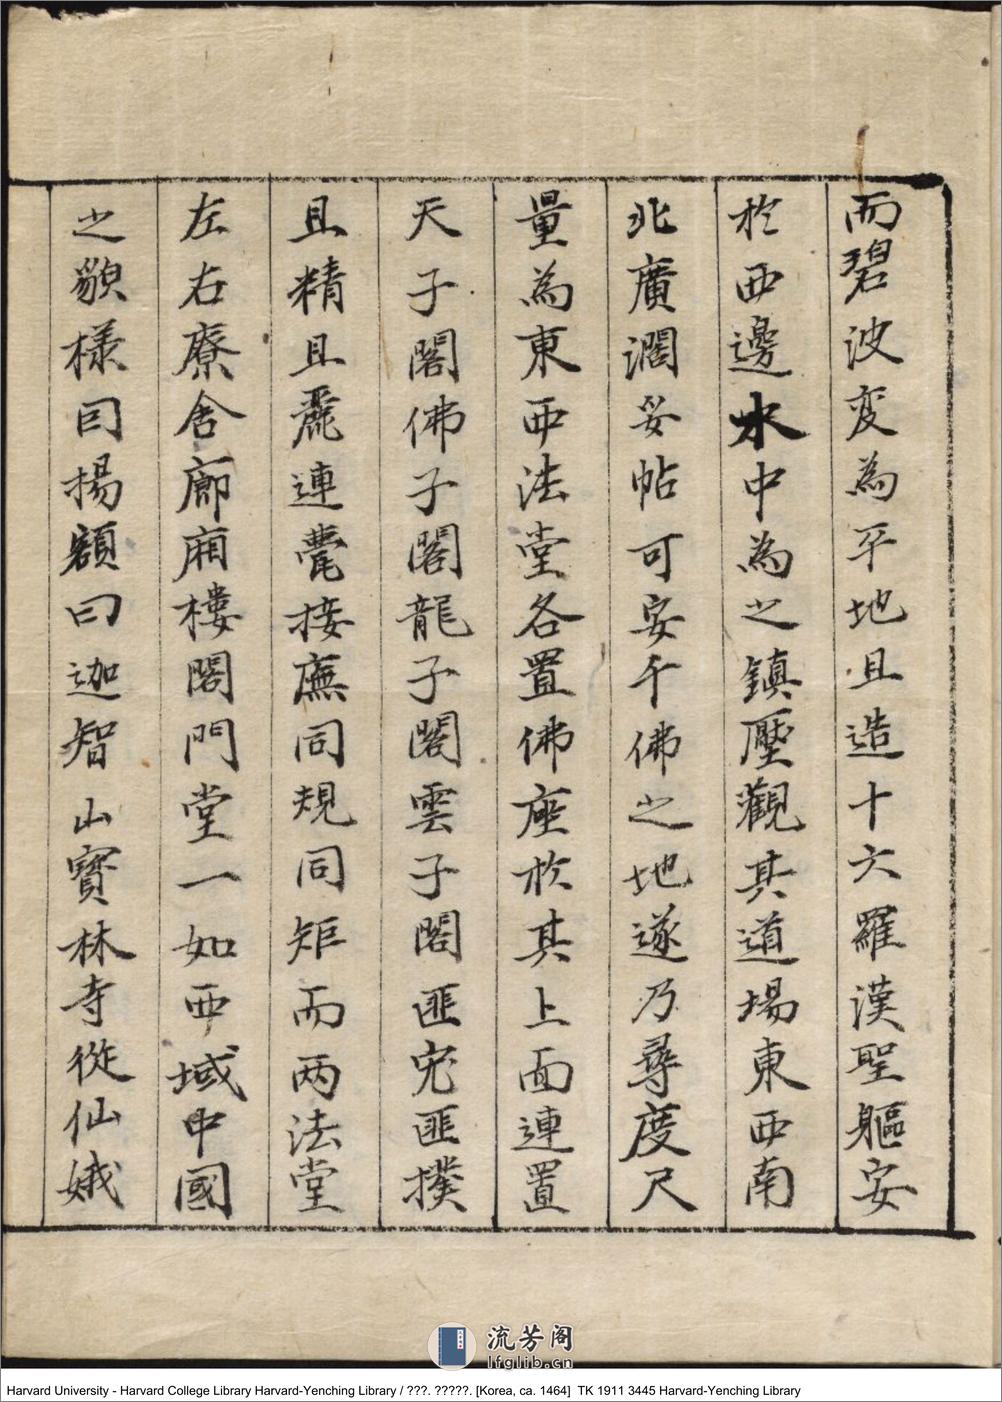 而碧波変為平地且造十六羅漢聖軀安
於西邊水中為之鎮壓觀其道場東西南
北廣濶妥帖可安千佛之地遂乃尋度尺
量為東西法堂各置佛座於其上面連置
天子閣佛子閣龍子閣雲子閣匪宄匪撲
且精且麗連甍接廡同規同矩而两法堂
左右寮舍廊廂樓閣門堂一如西域中國
之貌様因揚額曰迦智山寶林寺從仙娥
流芳阁
lfglib.cn
Harvard University - Harvard College Library Harvard-Yenching Library / ???. ?????. [Korea, ca. 1464] TK 1911 3445 Harvard-Yenching Library